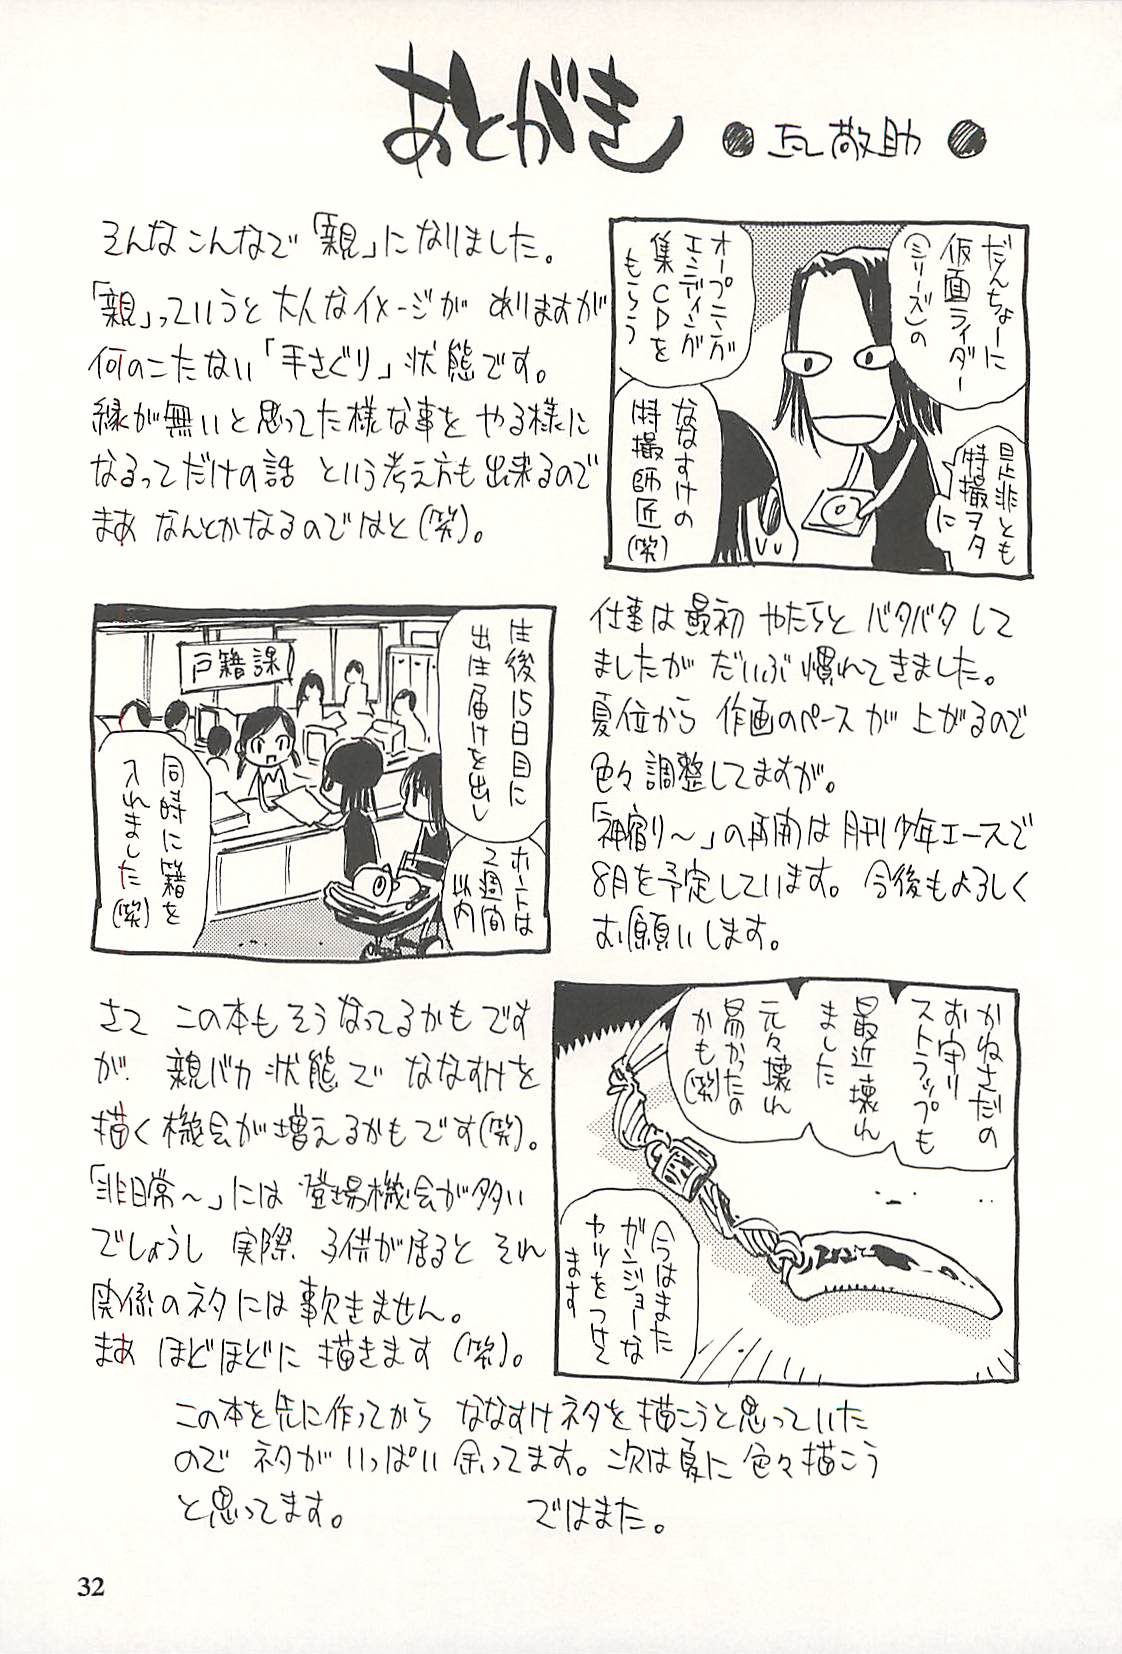 あとがき
●瓦敬助●
そんなこんなで「親」になりました。
「親」っていうと大人なイメージがありますが
何のこたない「手さぐり」状態です。
縁が無いと思ってた様な事をやる様に
なるってだけの話 という考え方も出来るので
まあ なんとかなるのではと(笑)。
だんちょーに
仮面ライダー
(シリーズ)の
オープニング
エンディング
集CDを
もらう
是非とも
特撮ヲタ
に
ななすけの
特撮師匠
(笑)
戸籍課
生後15日目に
出生届けを出し
ホントは
2週間
以内
同時に籍を
入れました(笑)
仕事は最初 やたらとバタバタして
ましたが だいぶ慣れてきました。
夏位から 作画のペースが上がるので
色々調整してますが。
「神宿り〜」の再開は月刊少年エースで
8月を予定しています。今後もよろしく
お願いします。
さて この本もそうなってるかもです
が 親バカ状態で ななすけを
描く機会が増えるかもです(笑)。
「非日常〜」には 登場機会が多い
でしょうし 実際 子供が居ると それ
関係のネタには事欠きません。
まあ ほどほどに 描きます(笑)。
かねさだの
お守り
ストラップも
最近壊れ
ました
元々壊れ
易かったの
かも(笑)
今はまた
ガンジョーな
ヤツをつけて
ます
この本を先に作ってから ななすけネタを描こうと思っていた
ので ネタがいっぱい余ってます。次は夏に色々描こう
と思ってます。
ではまた。
32